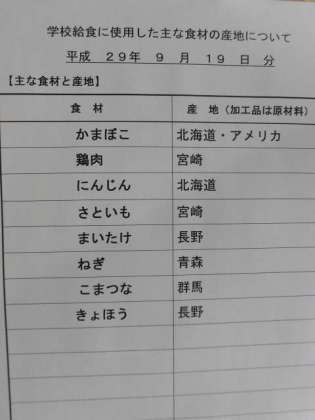 学校給食に使用した主な食材の産地について
平成 29年 9 月 19 日 分
【主な食材と産地】
食 材 産 地（加工品は原材料）
かまぼこ 北海道・アメリカ
鶏肉 宮崎
にんじん 北海道
さといも 宮崎
まいたけ 長野
ねぎ 青森
こまつな 群馬
きょほう 長野